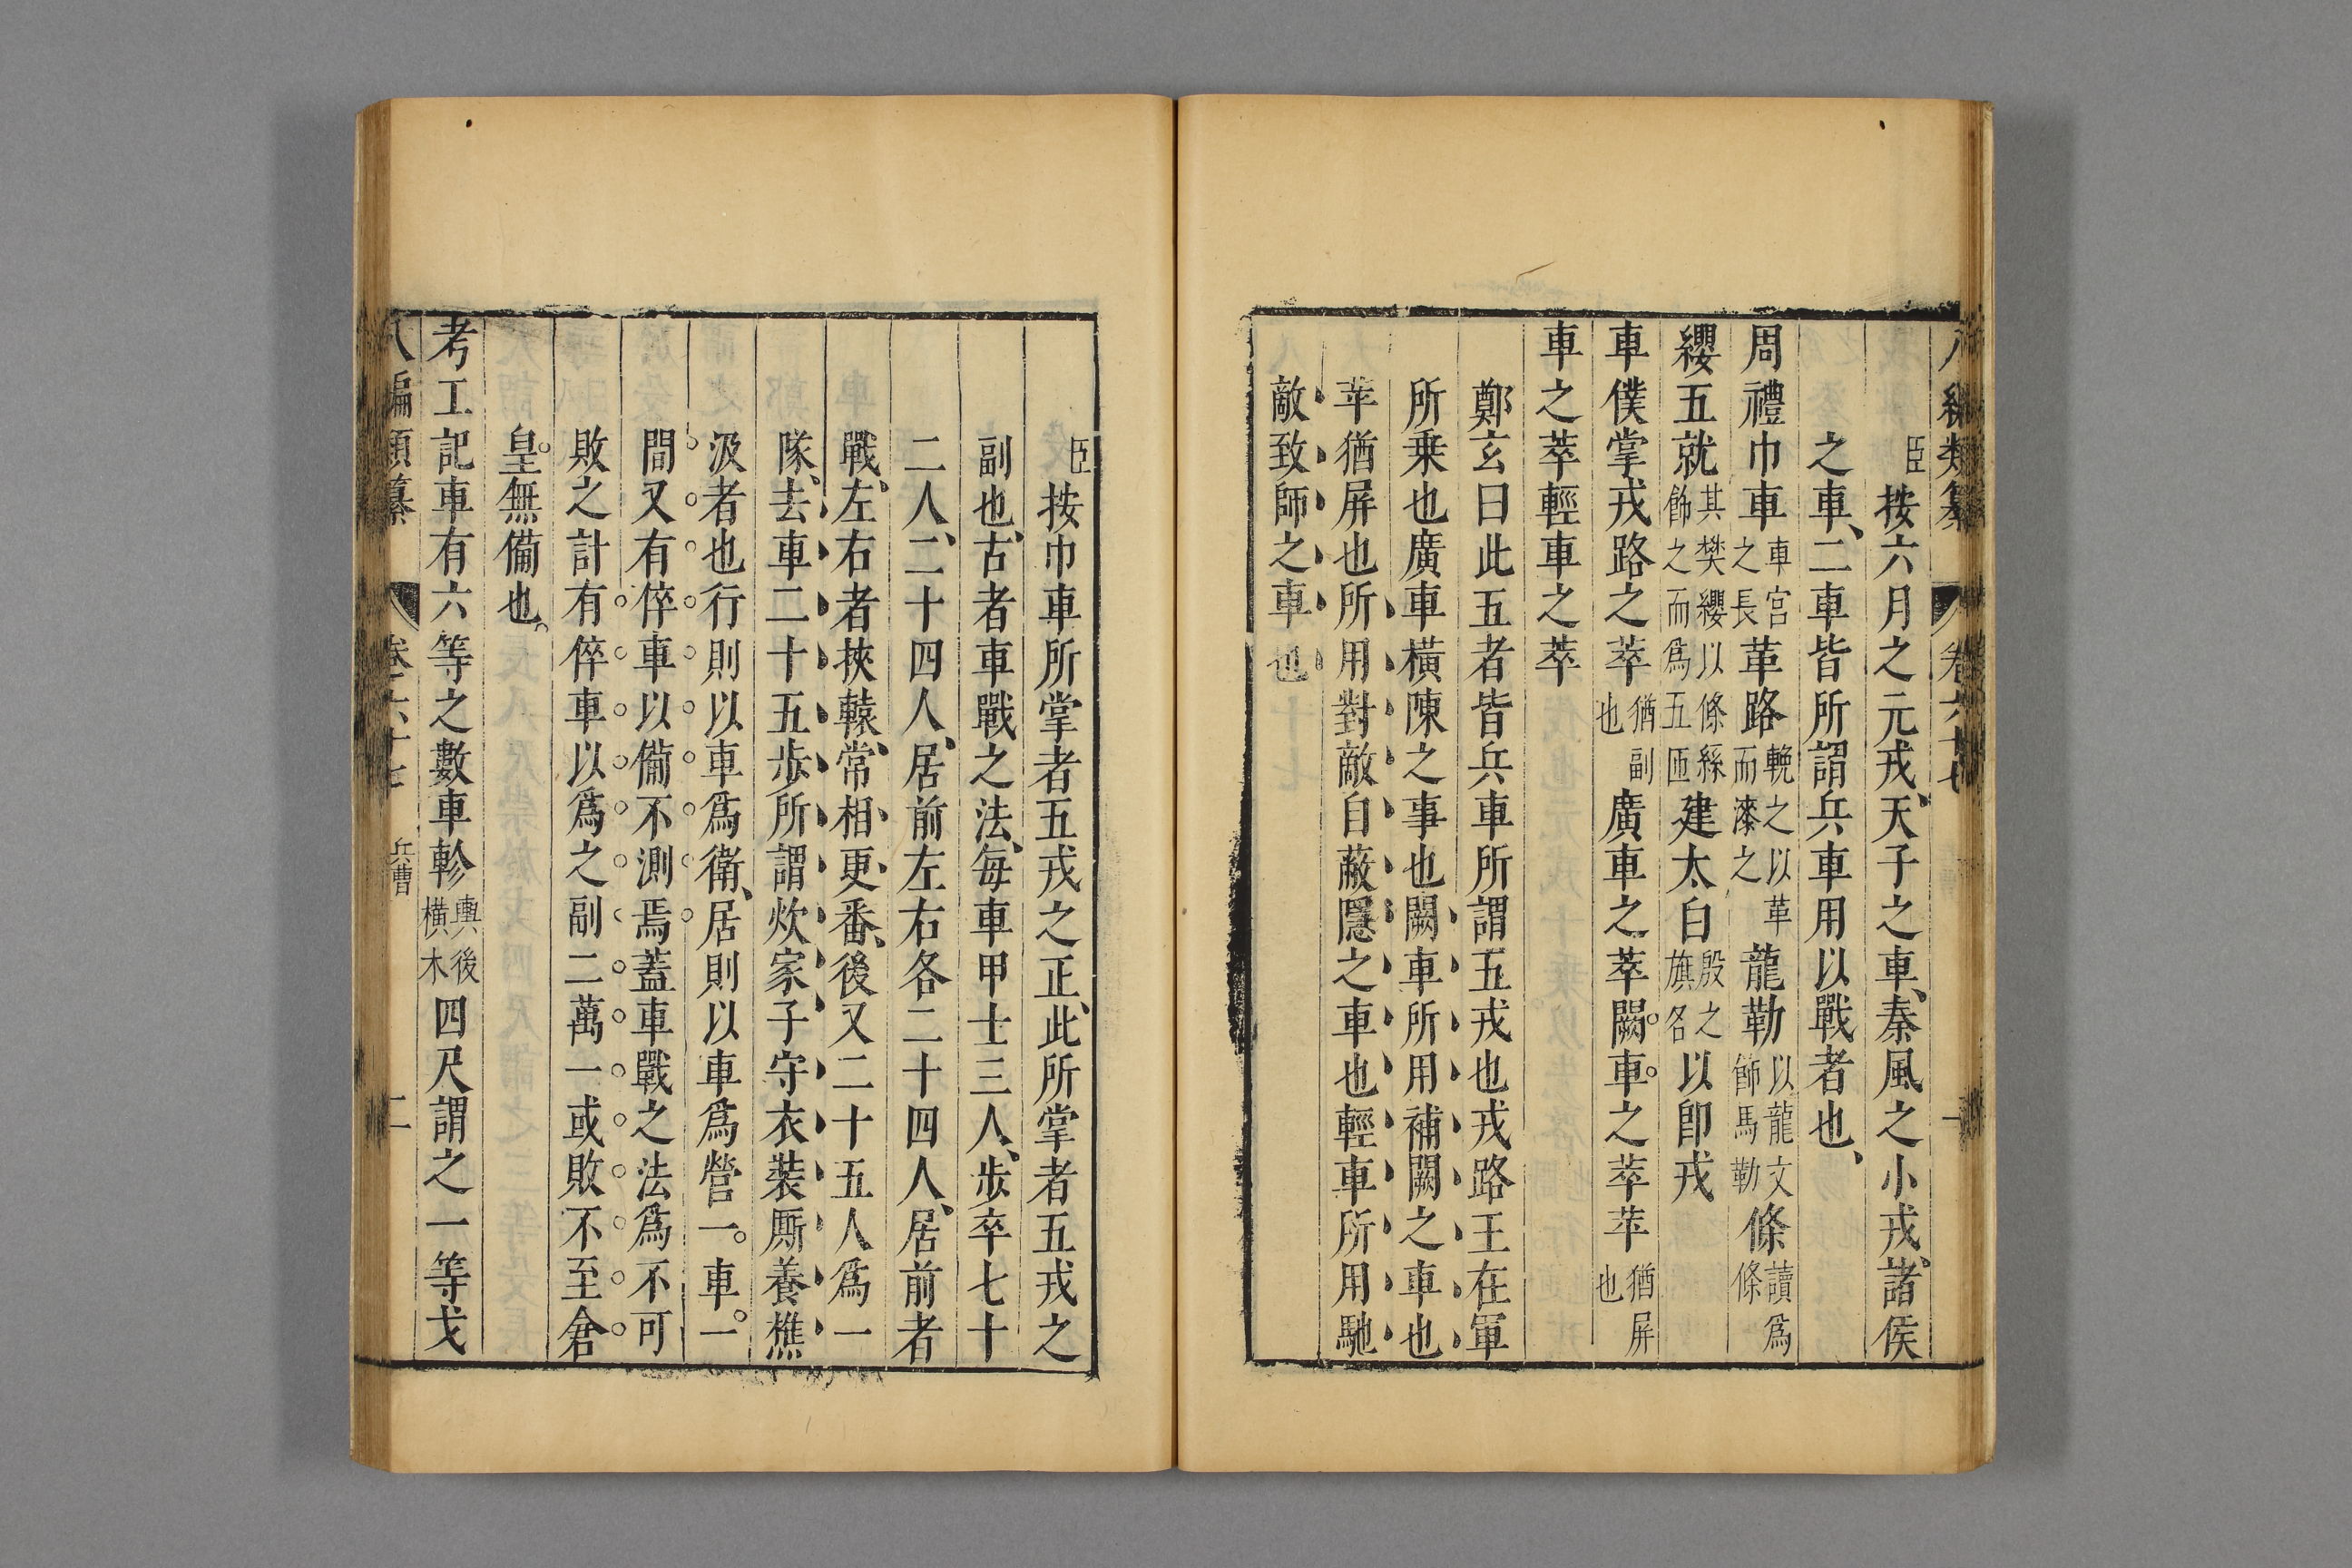 八編類纂 卷六十七 一
臣按六月之元戎、天子之車、秦風之小戎、諸侯
之車、二車皆所謂兵車用以戰者也、
周禮巾車車官之長革路輓之以革而漆之龍勒以龍文飾馬勒條讀爲絛
纓五就其樊纓以條絲飾之而爲五匝建太白殷之旗名以卽戎
車僕掌戎路之萃猶副也廣車之萃闕車之萃苹猶屏也
車之萃輕車之萃
鄭玄曰此五者皆兵車所謂五戎也戎路王在軍
所乗也廣車橫陳之事也闕車所用補闕之車也
苹猶屏也所用對敵自蔽隱之車也輕車所用馳
敵致師之車也
臣按巾車所掌者五戎之正、此所掌者五戎之
副也、古者車戰之法、每車甲士三人、步卒七十
二人、二十四人、居前左右各二十四人、居前者
戰、左右者挾轅、常相更番、後又二十五人爲一
隊、去車二十五步所謂炊家子守衣裝厮養樵
汲者也行則以車爲衛、居則以車爲營一車一
間又有倅車以備不測焉蓋車戰之法爲不可
敗之計有倅車以爲之副二萬一或敗不至倉
皇無備也。
考工記車有六等之數車軫輿後橫木四尺謂之一等戈
八編類纂 卷六十七 兵曹 二